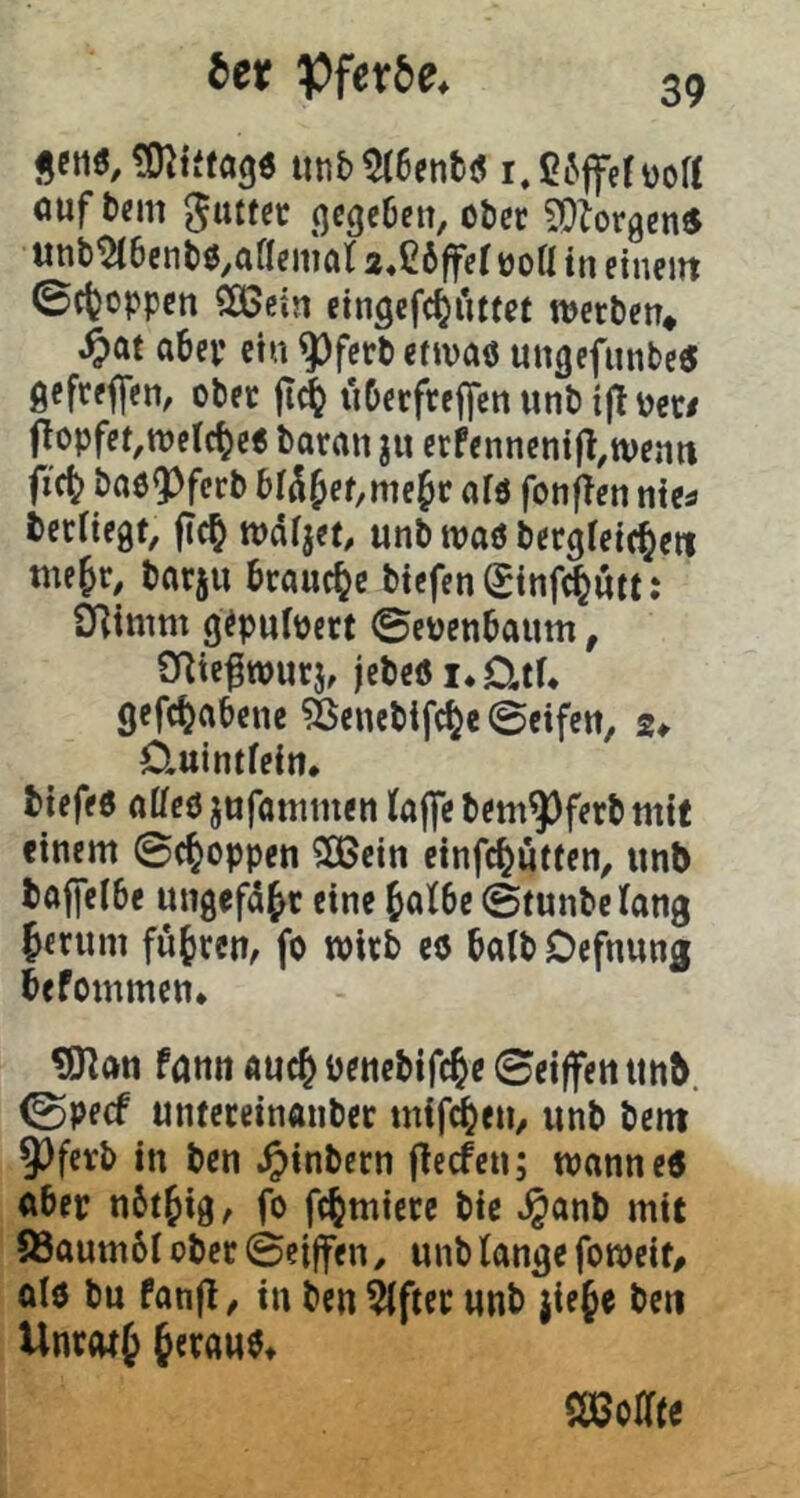 der Pferde.
39
gens, Mittags und Abends 1. Löffel voll
auf dem Futter gegeben, oder Morgens
und Abends, allemal 2. Löffel voll in einem
Schoppen Wein eingeschüttet werden.
Hat aber ein Pferd etwas ungesundes
gefressen, oder sich überfressen und ist ver-
stopfet, welches daran zu erkennen ist, wenn
sich das Pferd blähet, mehr als sonsten nie-
derliegt, sich wälzet, und was dergleichen
mehr, darzu brauche diesen Einschütt:
Nimm gepulvert Sevenbaum,
Nießwurz, jedes 1. Qtl.
geschabene Venedische Seifen, 2.
Quintlein.
dieses alles zusammen lasse dem Pferd mit
einem Schoppen Wein einschütten, und
dasselbe ungefähr eine halbe Stunde lang
herum führen, so wird es bald Oefnung
bekommen.
Man kann auch venedische Seiffen und
Speck untereinander mischen, und dem
Pferd in den Hindern stecken; wann es
aber nöthig, so schmiere die Hand mit
Baumöl oder Seiffen, und lange soweit,
als du kanst, in den After und ziehe den
Unrath heraus.
Wollte